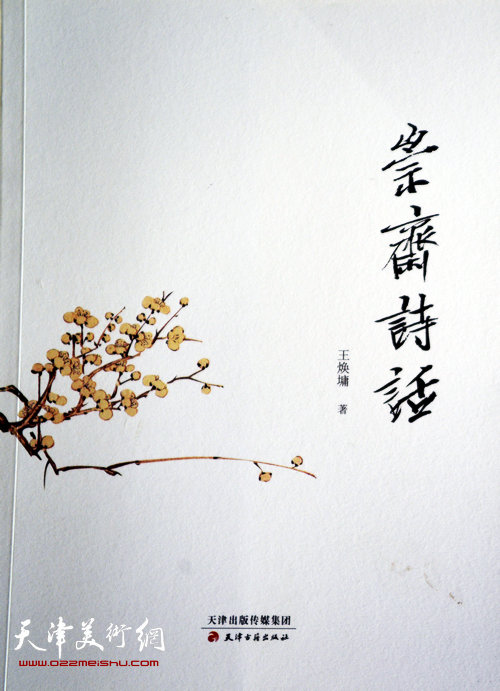 崇齋詩話
王焕墉 著
天津出版传媒集团
天津古籍出版社
天津美術網
www.022meishu.com